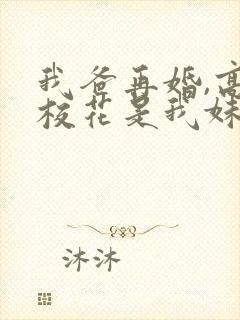 我爸再婚,高
校花是我妹
沐沐